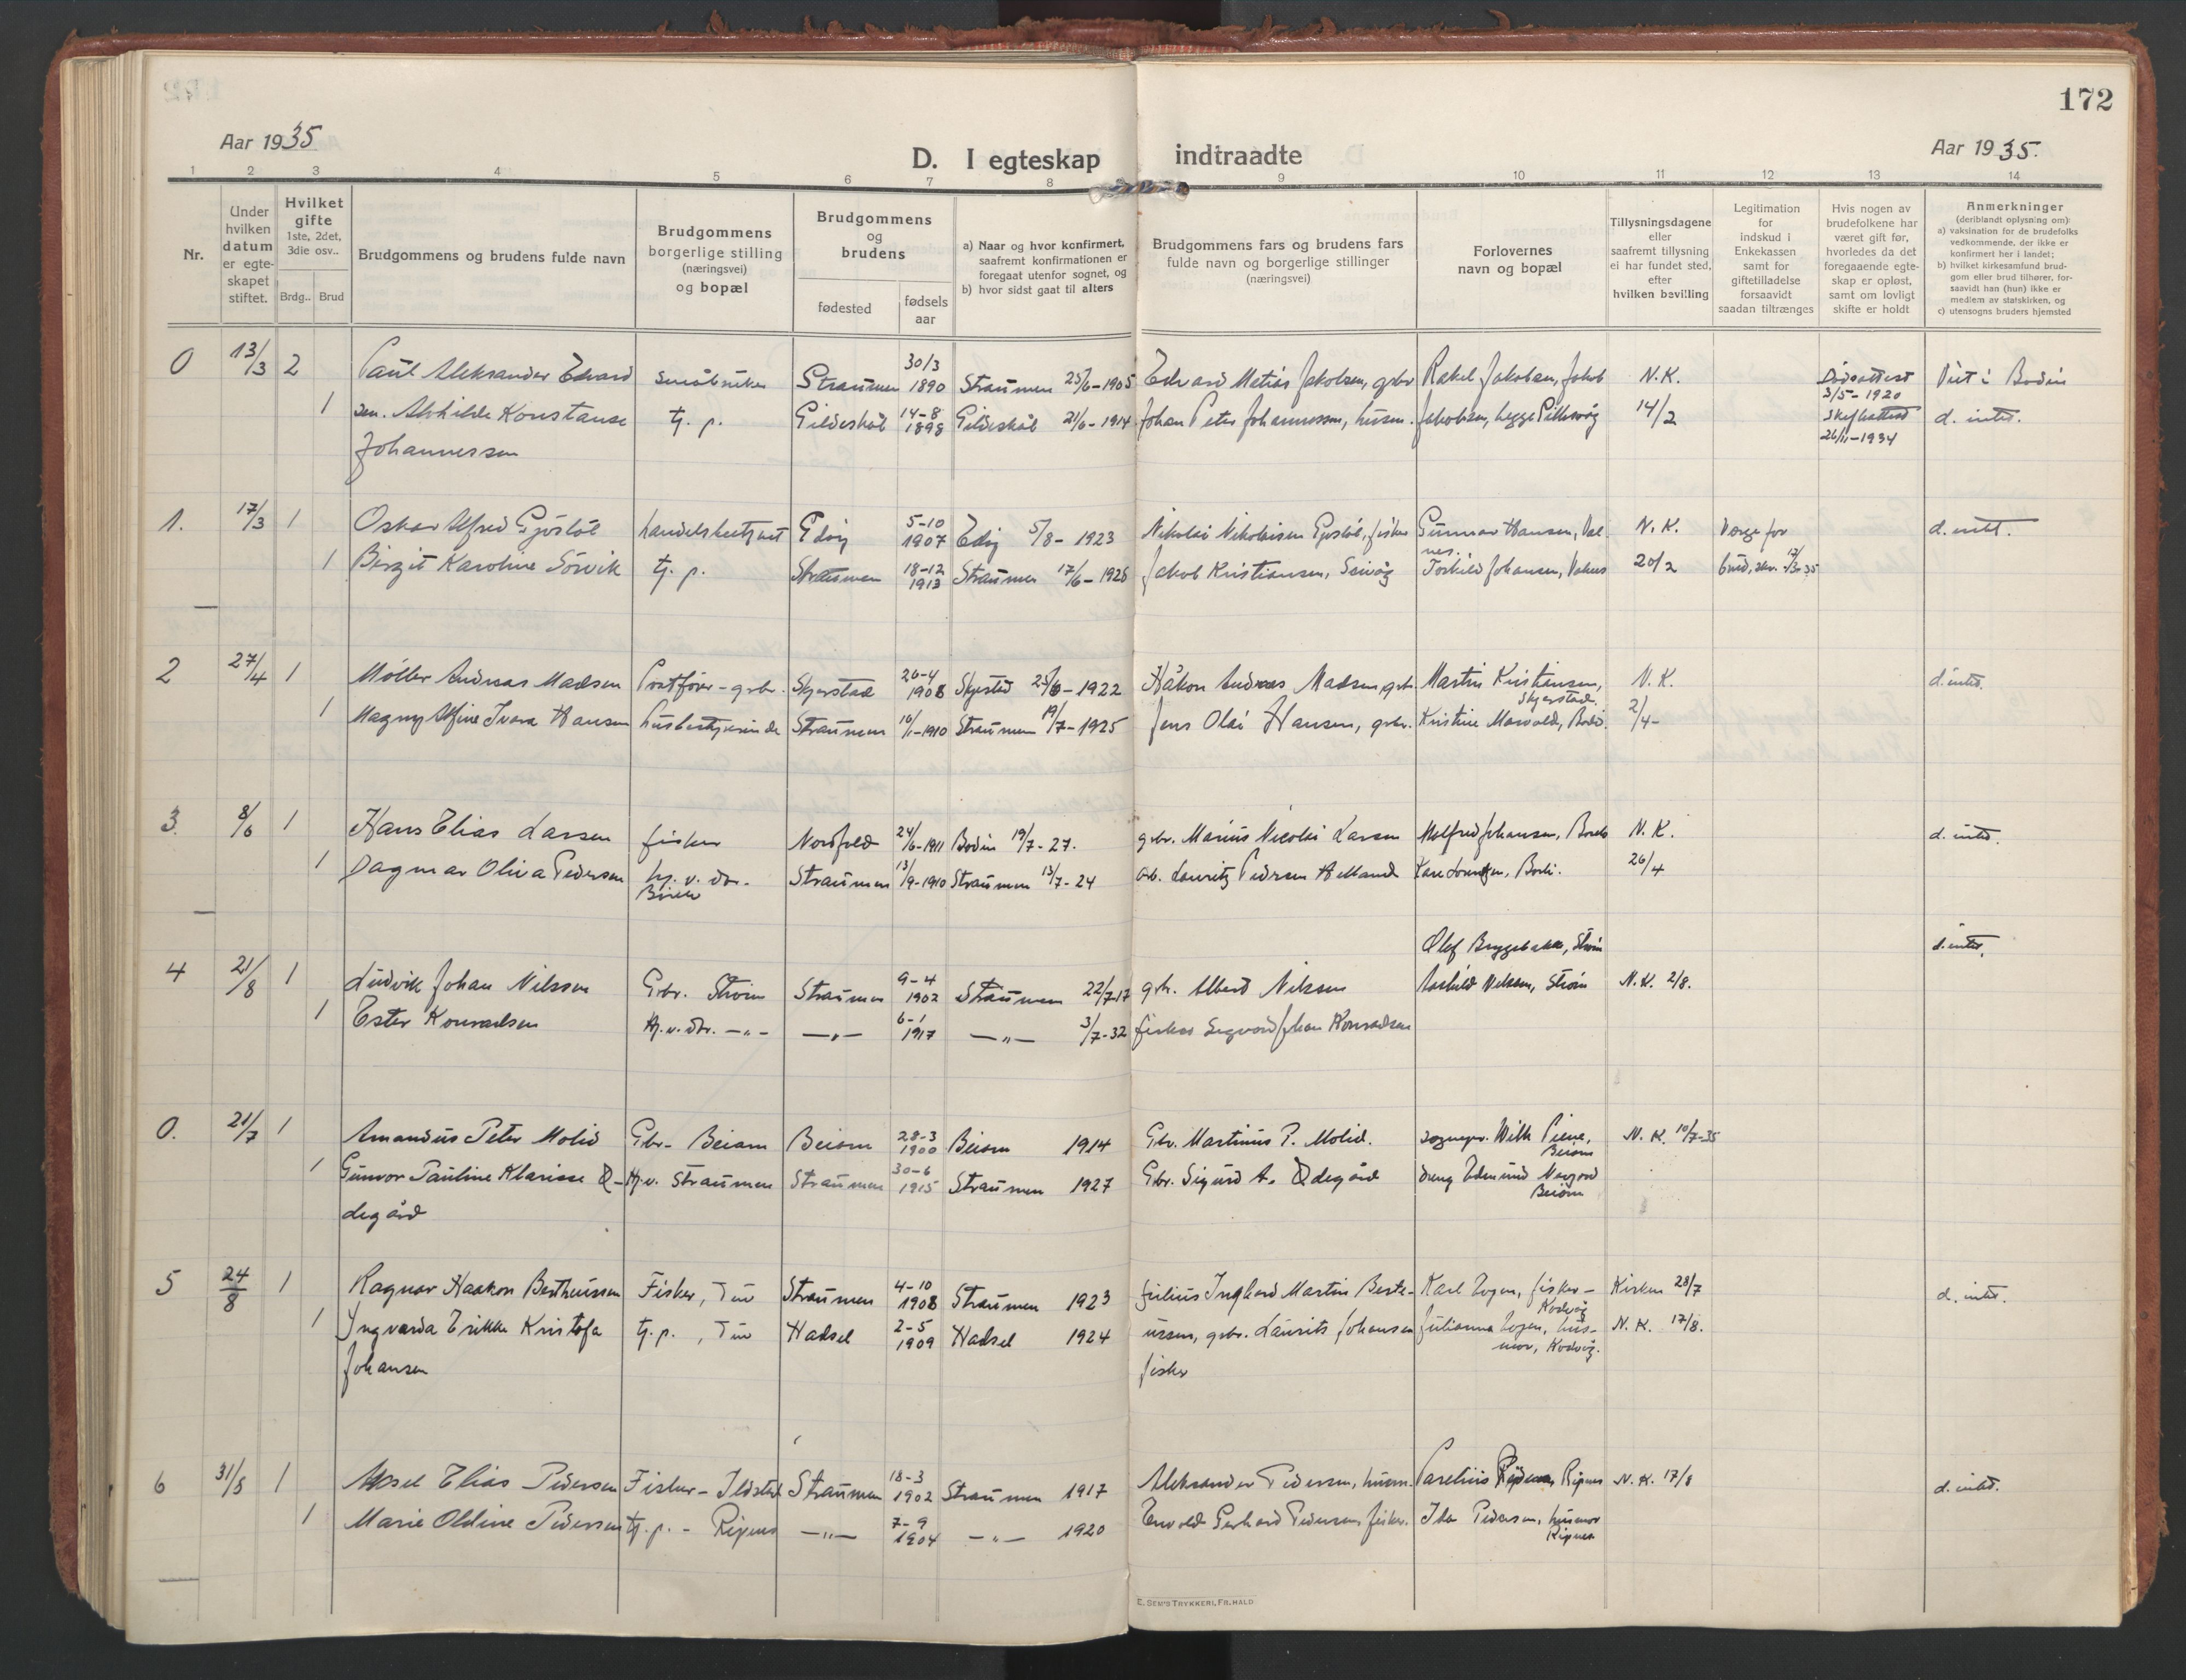 172
Aar 1935
D. I egteskap indtraadte
Aar 1935.
1 2 3 4 5 6 7 8 9 10 11 12 13 14
Nr.
Under hvilken datum er egteskapet stiftet.
Hvilket gifte 1ste, 2det, 3die osv..
Brdg.. Brud
Brudgommens og brudens fulde navn
Brudgommens borgerlige stilling (næringsvei) og bopæl
Brudgommens og brudens
fødested
fødsels aar
a) Naar og hvor konfirmert, saafremt konfirmationen er foregaat utenfor sognet, og
b) hvor sidst gaat til alters
Brudgommens fars og brudens fars fulde navn og borgerlige stillinger (næringsvei)
Forlovernes navn og bopæl
Tillysningsdagene eller saafremt tillysning ei har fundet sted, efter hvilken bevilling
Legitimation for indskud i Enkekassen samt for giftetilladelse forsaavidt saadan tiltrænges
Hvis nogen av brudefolkene har været gift før, hvorledes da det foregaaende egteskap er opløst, samt om lovligt skifte er holdt
Anmerkninger (deriblandt oplysning om):
a) vaksination for de brudefolks vedkommende, der ikke er konfirmert her i landet;
b) hvilket kirkesamfund brudgom eller brud tilhører, forsaavidt han (hun) ikke er medlem av statskirken, og
c) utensogns bruders hjemsted
0 13/3 2 Paul Aleksander Edvard småbruker Straumen 30/3 1890 Straumen 25/6-1905 Edvard Matias Jakobsen, gbr Rakel Jakobsen, Jakob N.K. Dødsattest 3/5-1920 Viet i Bodin
1 sen. Alvhilde Konstanse tj. p. Gildeskål 14-8 1898 Gildeskål 21/6-1914 Johan Peter Johannessen, husm. Jakobsen, begge 14/2 Skifteattest 26/11-1934 d. intet.
Johannessen
1. 17/3 1 Oskar Alfred Gjøstøl handelsbetjent Edøy 5-10 1907 Edøy 5/8-1923 Nikolai Nikolaisen Gjøstøl, fisker Gunnar Hansen, Valnes. N.K. Verge for d. intet.
1 Birgit Karoline Sörvik tj. p. Straumen 18-12 1913 Straumen 17/6-1928 Jakob Kristiansen, Seivåg Torkild Johansen, Valnes 20/2
2 27/4 1 Møller Andreas Madsen Postfører - gbr. Skjerstad 26-4 1908 Skjerstad 25/6-1922 Håkon Andreas Madsen, gbr. Martin Kristiansen, Skjerstad. N.K. d. intet.
1 Magny Alfine Ivara Hansen husbestyrerinde Straumen 16/1-1910 Straumen 19/7-1925 Jens Olai Hansen, gbr. Kristine Morvold, Bodø. 2/4-
3. 8/6 1 Hans Elias Larsen fisker Nordfold 24/6-1911 Bodin 19/7-27. gbr. Marius Nicolai Larsen Alfred Johansen, N.K. d. intet.
1 Dagmar Oliva Pedersen hj. v. dtr. Straumen 13/9-1910 Straumen 13/7-24 arb. Lauritz Pedersen 26/4
Olof Bryggebakk, Strøm d. intet.
4 21/8 1 Ludvik Johan Nilsson Gbr. Strøm Straumen 9-4 1902 Straumen 22/7-17 gbr. Albert Nilsson Aashild Nilsson, Strøm N.K. 2/8.
1 Ester Konradsen Hj.v. dtr. -"- -"- 6-1 1917 -"- 3/7-32 fisker Sigvard Johan Konradsen
0. 21/7 1 Amandus Peter Molid Gbr- Beiarn Beiarn 28-3 1900 Beiarn 1914 Gbr. Martinus P. Molid. sognepr. Wilh Piene, Beiarn N.K. 10/7-35
1 Gunvor Pauline Klarisse Ø- Hj.v. Straumen Straumen 30-6 1915 Straumen 1927 Gbr. Sigurd A. Ødegård dreng Edmund Beiarn
degård
5 24/8 1 Ragnar Haakon Bertheussen Fisker, Tuv Straumen 4-10 1908 Straumen 1923 Julius Ingvard Martin Berte- Karl Zogen, fisker - Kodvåg Kirken 28/7 d. intet.
1 Yngvarda Erikke Kristofa tj. p., Tuv Hadsel 2-5 1909 Hadsel 1924 ussen, gbr. Laurits Johansen Julianna Zogen, husmor, Kodvåg. N.K. 17/8.
Johansen fisker
6 31/8 1 Aksel Elias Pedersen Fisker - Ildstad Straumen 18-3 1902 Straumen 1917 Aleksander Pedersen, husm. Parelius Pedersen, Ripnes N.K. 17/8 d. intet.
1 Marie Oldine Pedersen tj. p. - Ripnes -"- 7-9 1904 -"- 1920 Enevold Gerhard Pedersen, fisker. Ida Pedersen, husmor Ripnes
E. SEM'S TRYKKERI, FR.HALD